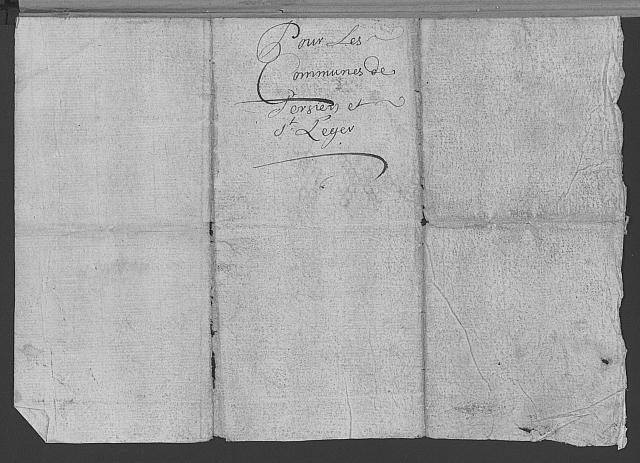 Pour Les
Communes de
Persien et
St. Leger